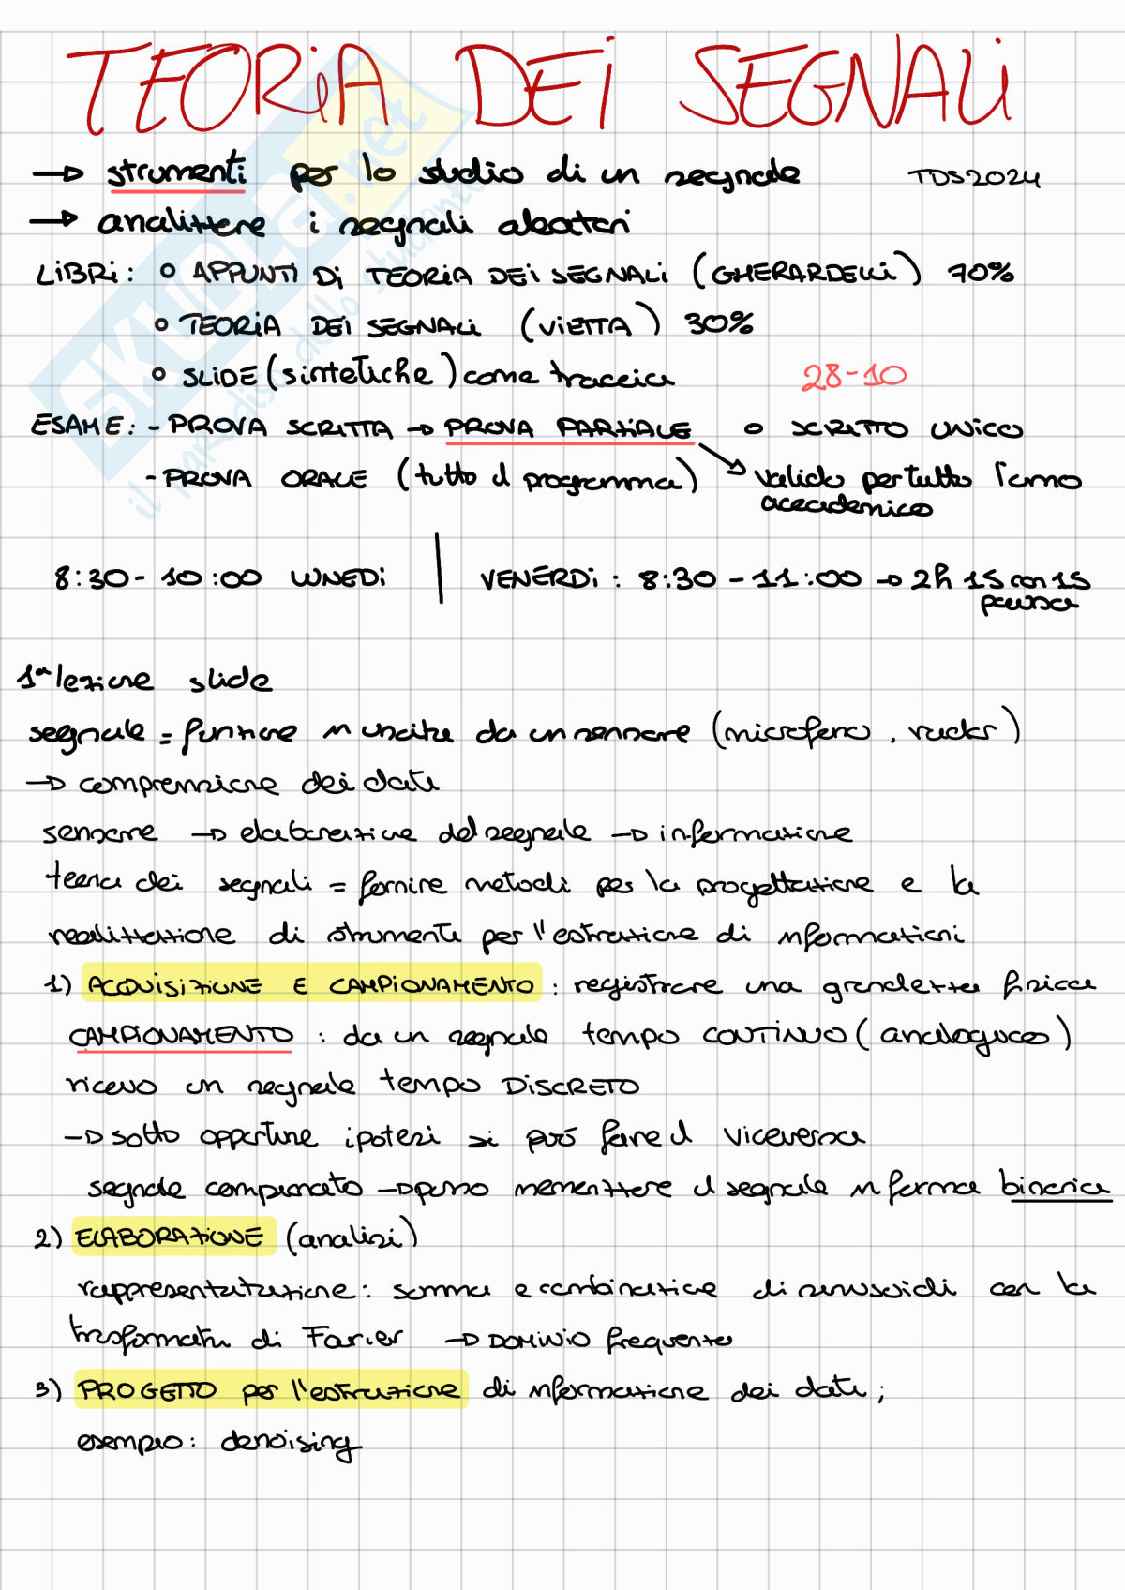 TEORIA DEI SEGNALI
→ strumenti per lo studio di un segnale TDS2024
→ analizzare i segnali aleatori
LIBRI: o APPUNTI DI TEORIA DEI SEGNALI (GHERARDELLI) 70%
o TEORIA DEI SEGNALI (VIETTA) 30%
o SLIDE (sintetiche) come traccia 28-10
ESAME: - PROVA SCRITTA → PROVA PARZIALE o SCRITTO UNICO
- PROVA ORALE (tutto il programma) valido per tutto l'anno
accademico
8:30-10:00 LUNEDI | VENERDI: 8:30-11:00 → 2h 15 con 15
pausa
1ª lezione slide
segnale = funzione in uscita da un sensore (microfono, radar)
→ compressione dei dati
sensore → elaborazione del segnale → informazione
teoria dei segnali = fornire metodi per la progettazione e la
realizzazione di strumenti per l'estrazione di informazioni
1) ACQUISIZIONE E CAMPIONAMENTO: registrare una grandezza fisica
CAMPIONAMENTO: da un segnale tempo CONTINUO (analogico)
ricavo un segnale tempo DISCRETO
→ sotto opportune ipotesi si può fare il viceversa
segnale campionato → posso memorizzare il segnale in forma binaria
2) ELABORAZIONE (analisi)
somma e combinazione di sinusoidi con la
di Fourier → DOMINIO frequenza
3) PROGETTO per l'estrazione di informazione dei dati;
esempio: denoising
SKUOLA.net
il paradiso dello studente